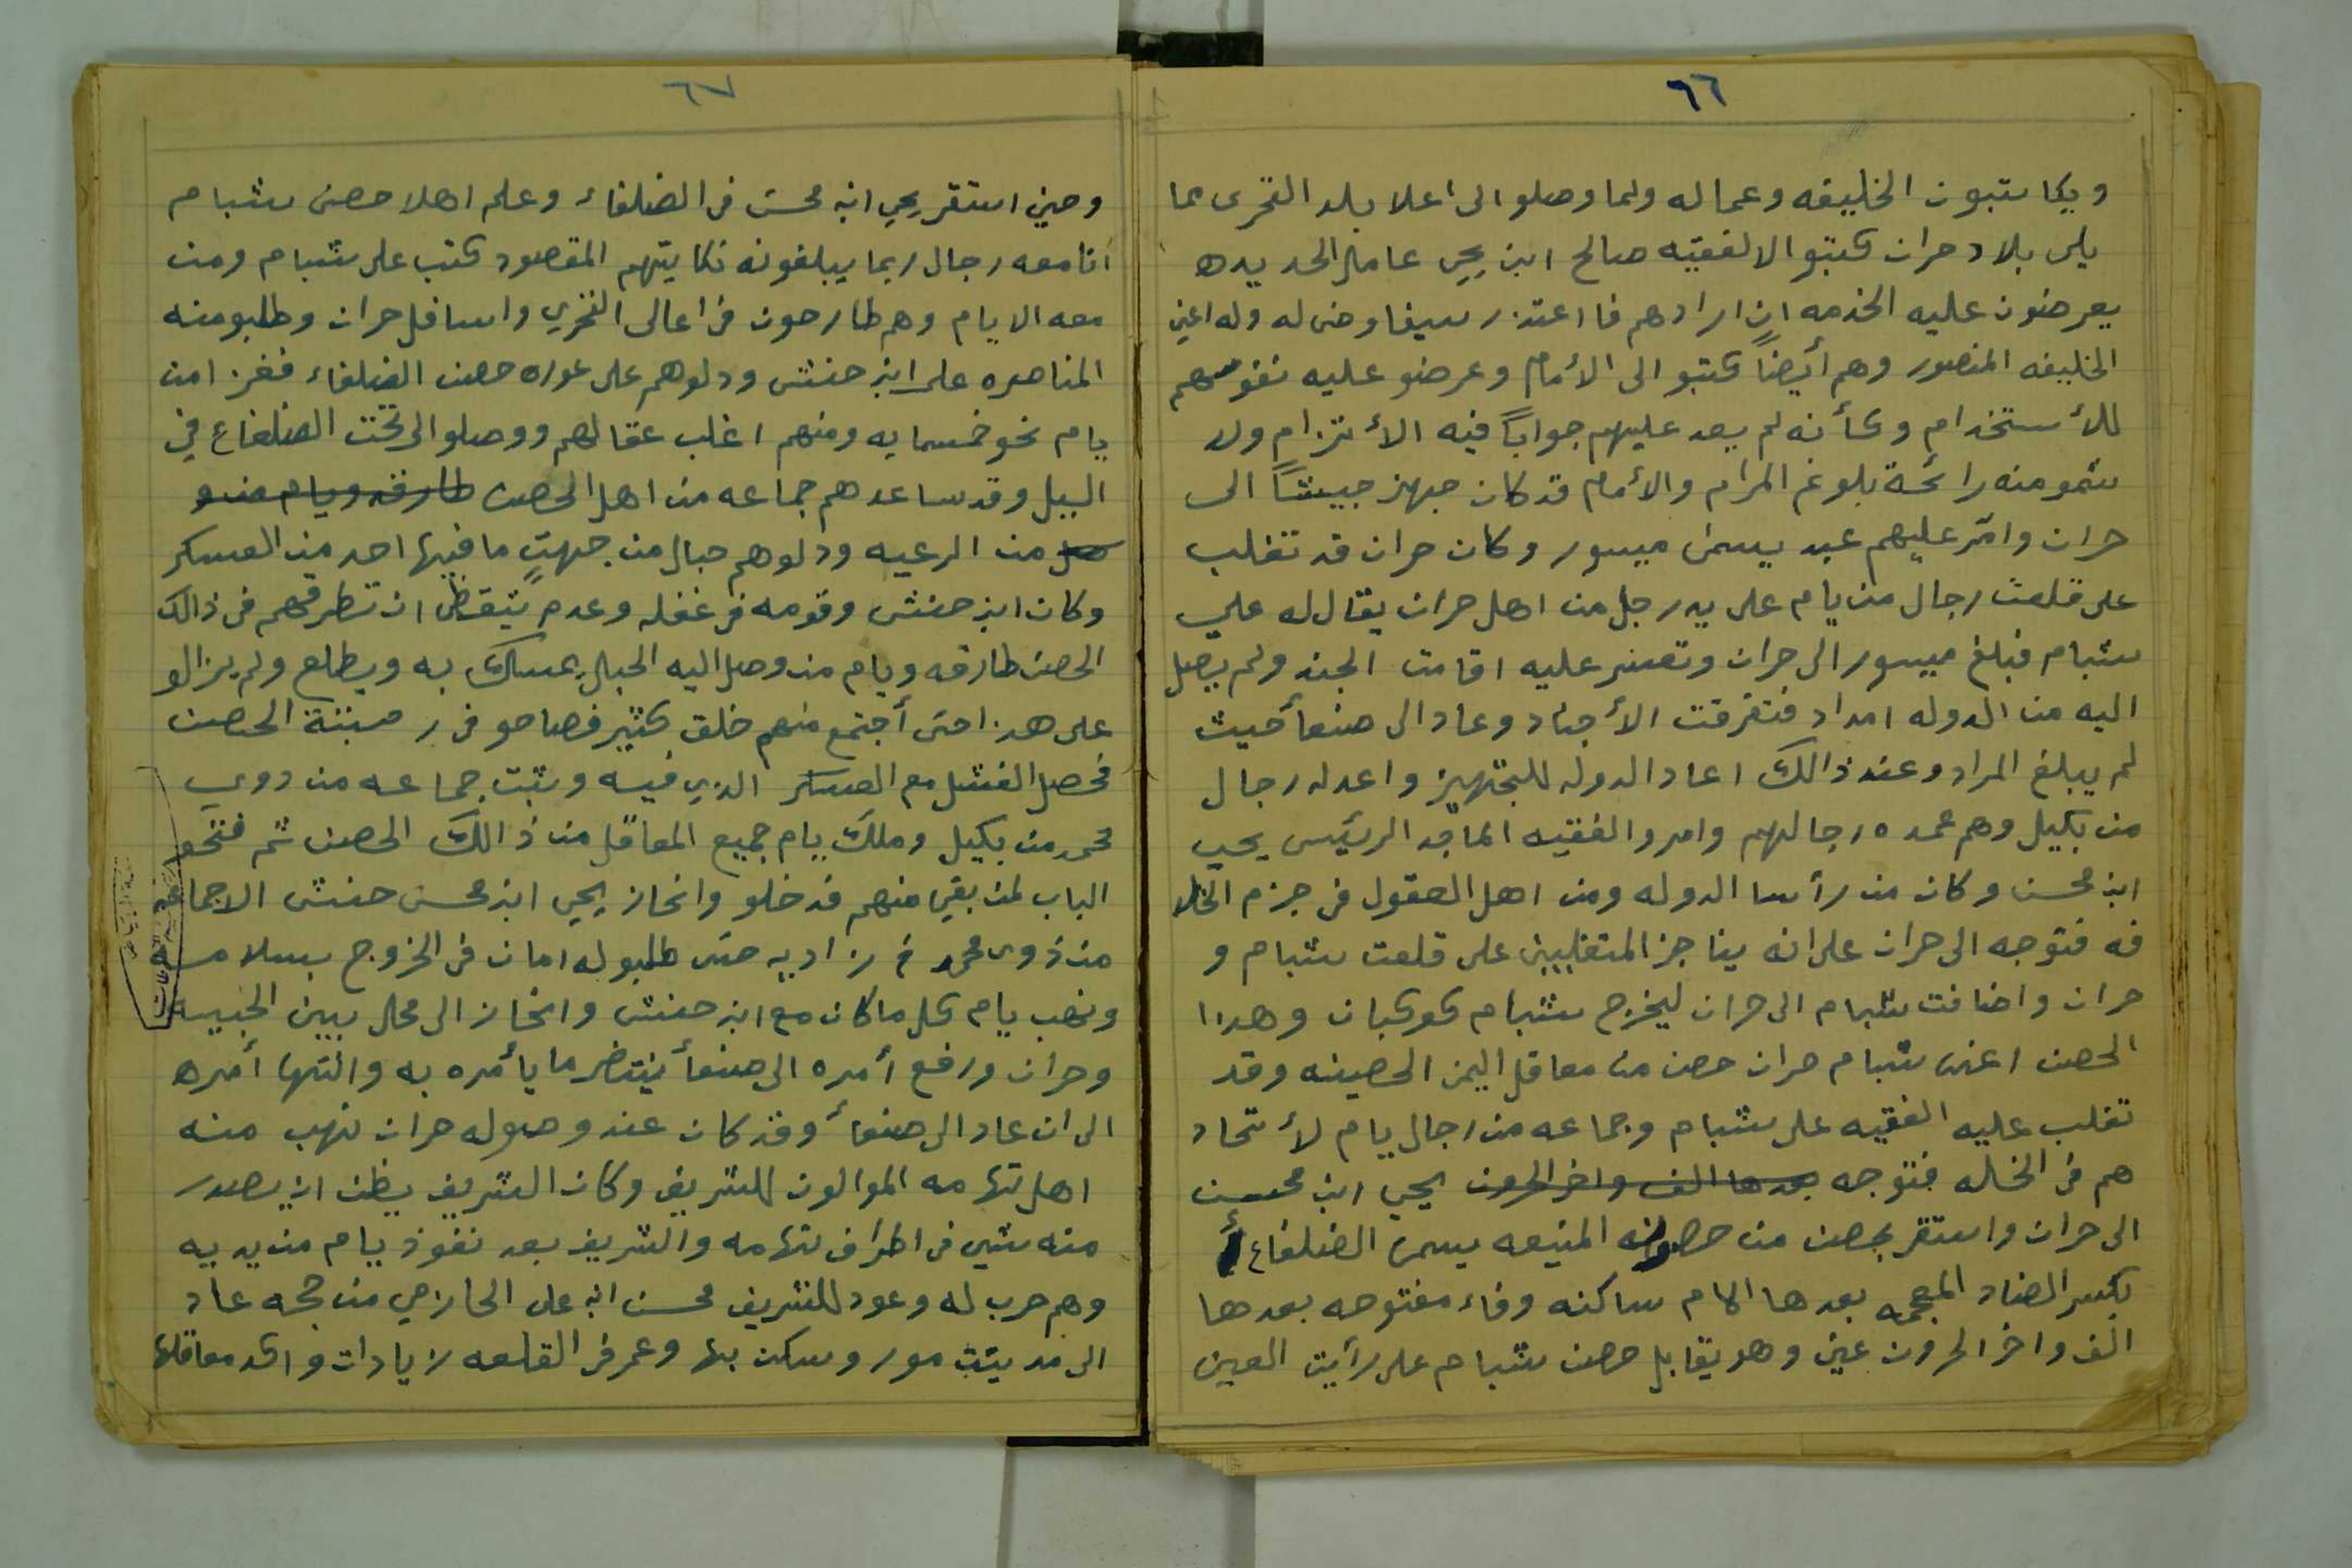 ٦٦
ويكاتبون الخليفه وعماله ولما وصلو الى اعلا بلد القحرى مما
يلى بلاد حران كتبو الا الفقيه صالح ابن يحي عامل الحديده
يعرضون عليه الخدمه ان ارادهم فا اعتذر سيفاوضى له وله اعني
الخليفه المنصور وهم أيضاً كتبو الى الأمام وعرضو عليه نفوسهم
للأستخدام وكأنه لم يعد عليهم جواباً فيه الأ لتزام ولا
شمو منه رائحة بلوغ المرام والأمام قد كان جهز جيشاً الى
حران وامّر عليهم عبد يسمى ميسور وكان حران قد تغلب
على قلعت رجال من يام على يد رجل من اهل حران يقال له علي
شبام فبلغ ميسور الى حران وتعسر عليه اقامت الجند ولم يصل
اليه من الدوله امداد فتفرقت الأجناد وعاد الى صنعأ حيث
لم يبلغ المراد وعند ذالك اعاد الدوله للتجهيز واعد له رجال
من بكيل وهم عمده رجالهم وامرو الفقيه الماجد الرئيس يحيي
ابن محسن وكان من رأسا الدوله ومن اهل العقول في جزم الخلا
فه فتوجه الى حران على انه يناجز المتغلبين على قلعت شبام و
حران واضافت شبام الى حران ليخرج شبام كوكبان وهذا
الحصن اعنى شبام حران حصن من معاقل اليمن الحصينه وقد
تغلب عليه الفقيه على شبام وجماعه من رجال يام لأتحاد
هم في الخله فتوجه بعدها الف واخر الحرون يحيي ابن محسن
الى حران واستقر بحصن من حصونه المنيعه يسمى الضلفاع
بكسر الضاد المعجمه بعدها الام ساكنه وفاء مفتوحه بعدها
الف واخر الحرون عين وهو يقابل حصن شبام على رأيت العين
٦٧
وحين استقر يحي ابن محسن في الضلفاء وعلم اهلا حصن شبام
انا معه رجال ربما يبلغونه نكايتهم المقصود كتب على شبام ومن
معه الا يام وهم طارحون في اعالى القحري واسافل حران وطلبو منه
المناصره على ابن حنش ودلوهم على عوره حصن الضلفاء فغزا من
يام نحو خمسمايه ومنهم اغلب عقالهم ووصلو الى تحت الضلفاع في
اليل وقد ساعدهم جماعه من اهل الحصن طارقه ويام
من الرعيه ودلوهم حبال من جهتٍ ما فيها احد من العسكر
وكان ابن حنش وقومه في غفله وعدم تيقظ ان تطرقهم في ذالك
الحصن طارقه ويام من وصل اليه الحبل يمسك به ويطلع ولم يزالو
على هذا حتى أجتمع منهم خلق كثير فصاحو في رتبة الحصن
فحصل الفشل مع العسكر الذي فيه وثبت جماعه من ذوي
محمد من بكيل وملك يام جميع المعاقل من ذالك الحصن ثم فتحو
الباب لمن بقي منهم فدخلو وانحاز يحي ابن محسن حنش الا جماعه
من ذوى محمد في زاديه حتى طلبو له امان في الخروج بسلامه
ونهب يام كل ما كان مع ابن حنش وانحاز الى محل بين الجبيه
وحران ورفع أمره الى صنعأ ينتضر ما يأمره به وانتها أمره
الى ان عاد الى صنعأ وقد كان عند وصوله حران نهب منه
اهل تهامه الموالون للشريف وكان الشريف يظن ان يصدر
منه شيى في اطراف تهامه والشريف بعد نفوذ يام من يديه
وهم حرب له وعود للشريف محسن ابن على الحازمي من حجه عاد
الى مدينت مور وسكن بها وعمر في القلعه زيادات واكد معاقلها